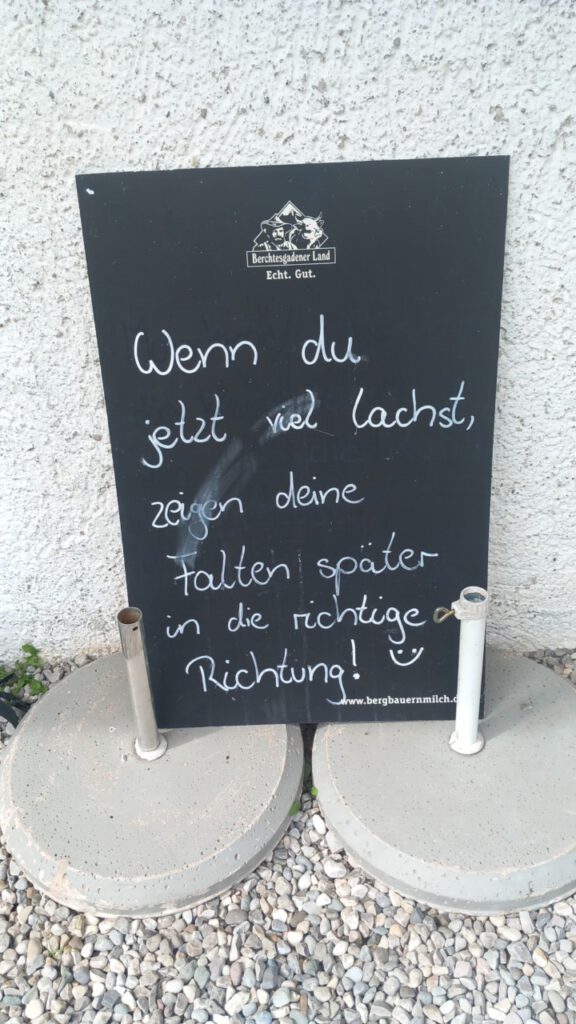 Berchtesgadener Land
Echt. Gut.
Wenn du
jetzt viel lachst,
zeigen deine
Falten später
in die richtige
Richtung!
www.bergbauernmilch.d